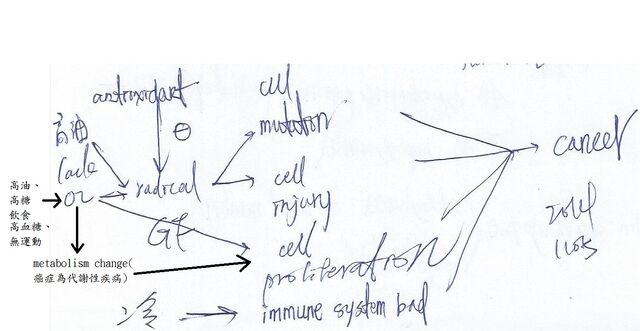 antioxidant
cell
mutation
高油
lack
O2
radical
cell
injury
cancer
高油、
高糖
飲食
高血糖、
無運動
GF
cell
proliferation
metabolism change(
癌症為代謝性疾病)
冷
immune system bad
2014
1105